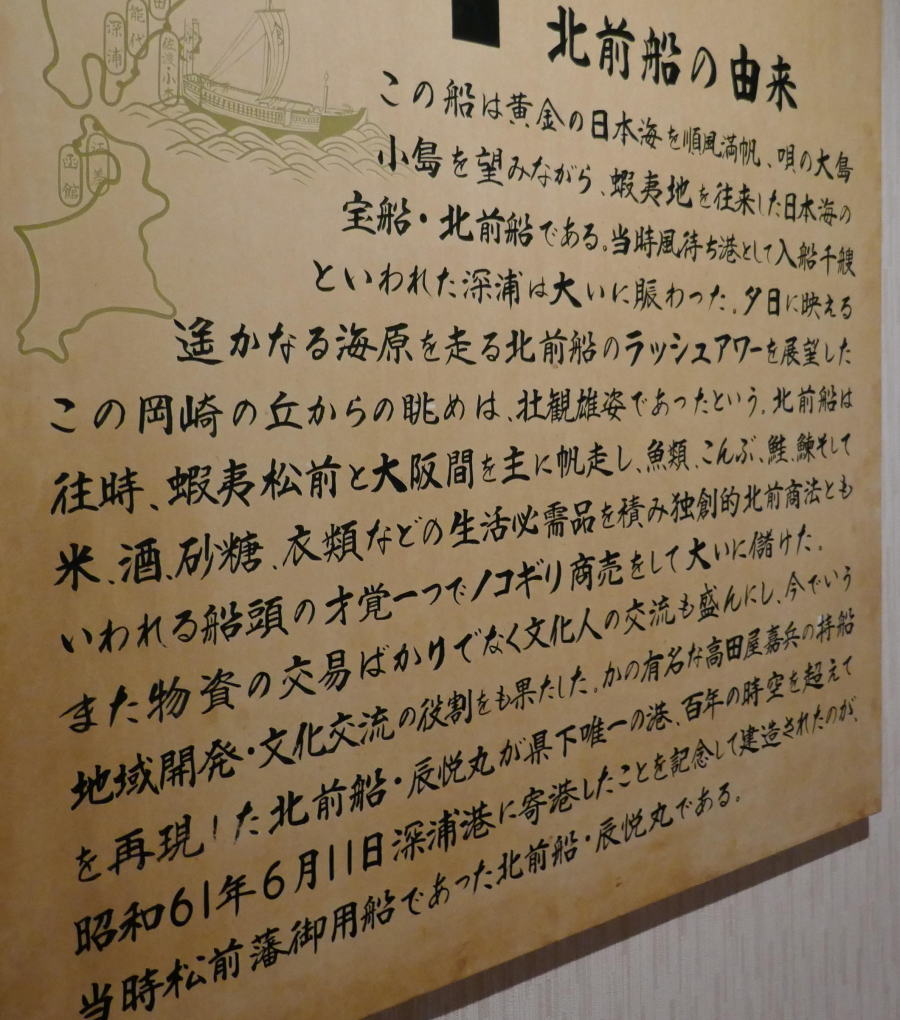 北前船の由来
この船は黄金の日本海を順風満帆、唄の大島
小島を望みながら、蝦夷地を往来した日本海の
宝船・北前船である。当時風待ち港として入船千艘
といわれた深浦は大いに賑わった。夕日に映える
遥かなる海原を走る北前船のラッシュアワーを展望した
この岡崎の丘からの眺めは、壮観雄姿であったという。北前船は
往時、蝦夷松前と大阪間を主に帆走し、魚類、こんぶ、鮭、鰊そして
米、酒、砂糖、衣類などの生活必需品を積み独創的北前商法とも
いわれる船頭の才覚一つでノコギリ商売をして大いに儲けた。
また物資の交易ばかりでなく文化人の交流も盛んにし、今でいう
地域開発・文化交流の役割をも果たした。かの有名な高田屋嘉兵の持船
を再現した北前船・辰悦丸が県下唯一の港、百年の時空を超えて
昭和61年6月11日深浦港に寄港したことを記念して建造されたのが、
当時松前藩御用船であった北前船・辰悦丸である。
能代
深浦
佐渡小木
函館
江差